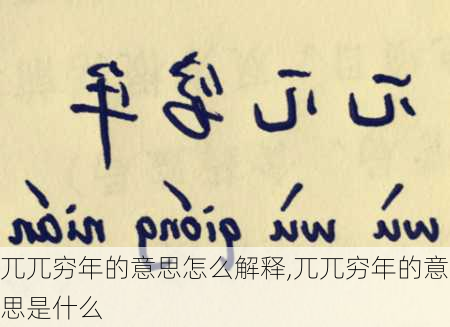 兀兀穷年
wù wù qióng nián
兀兀穷年的意思怎么解释,兀兀穷年的意
思是什么